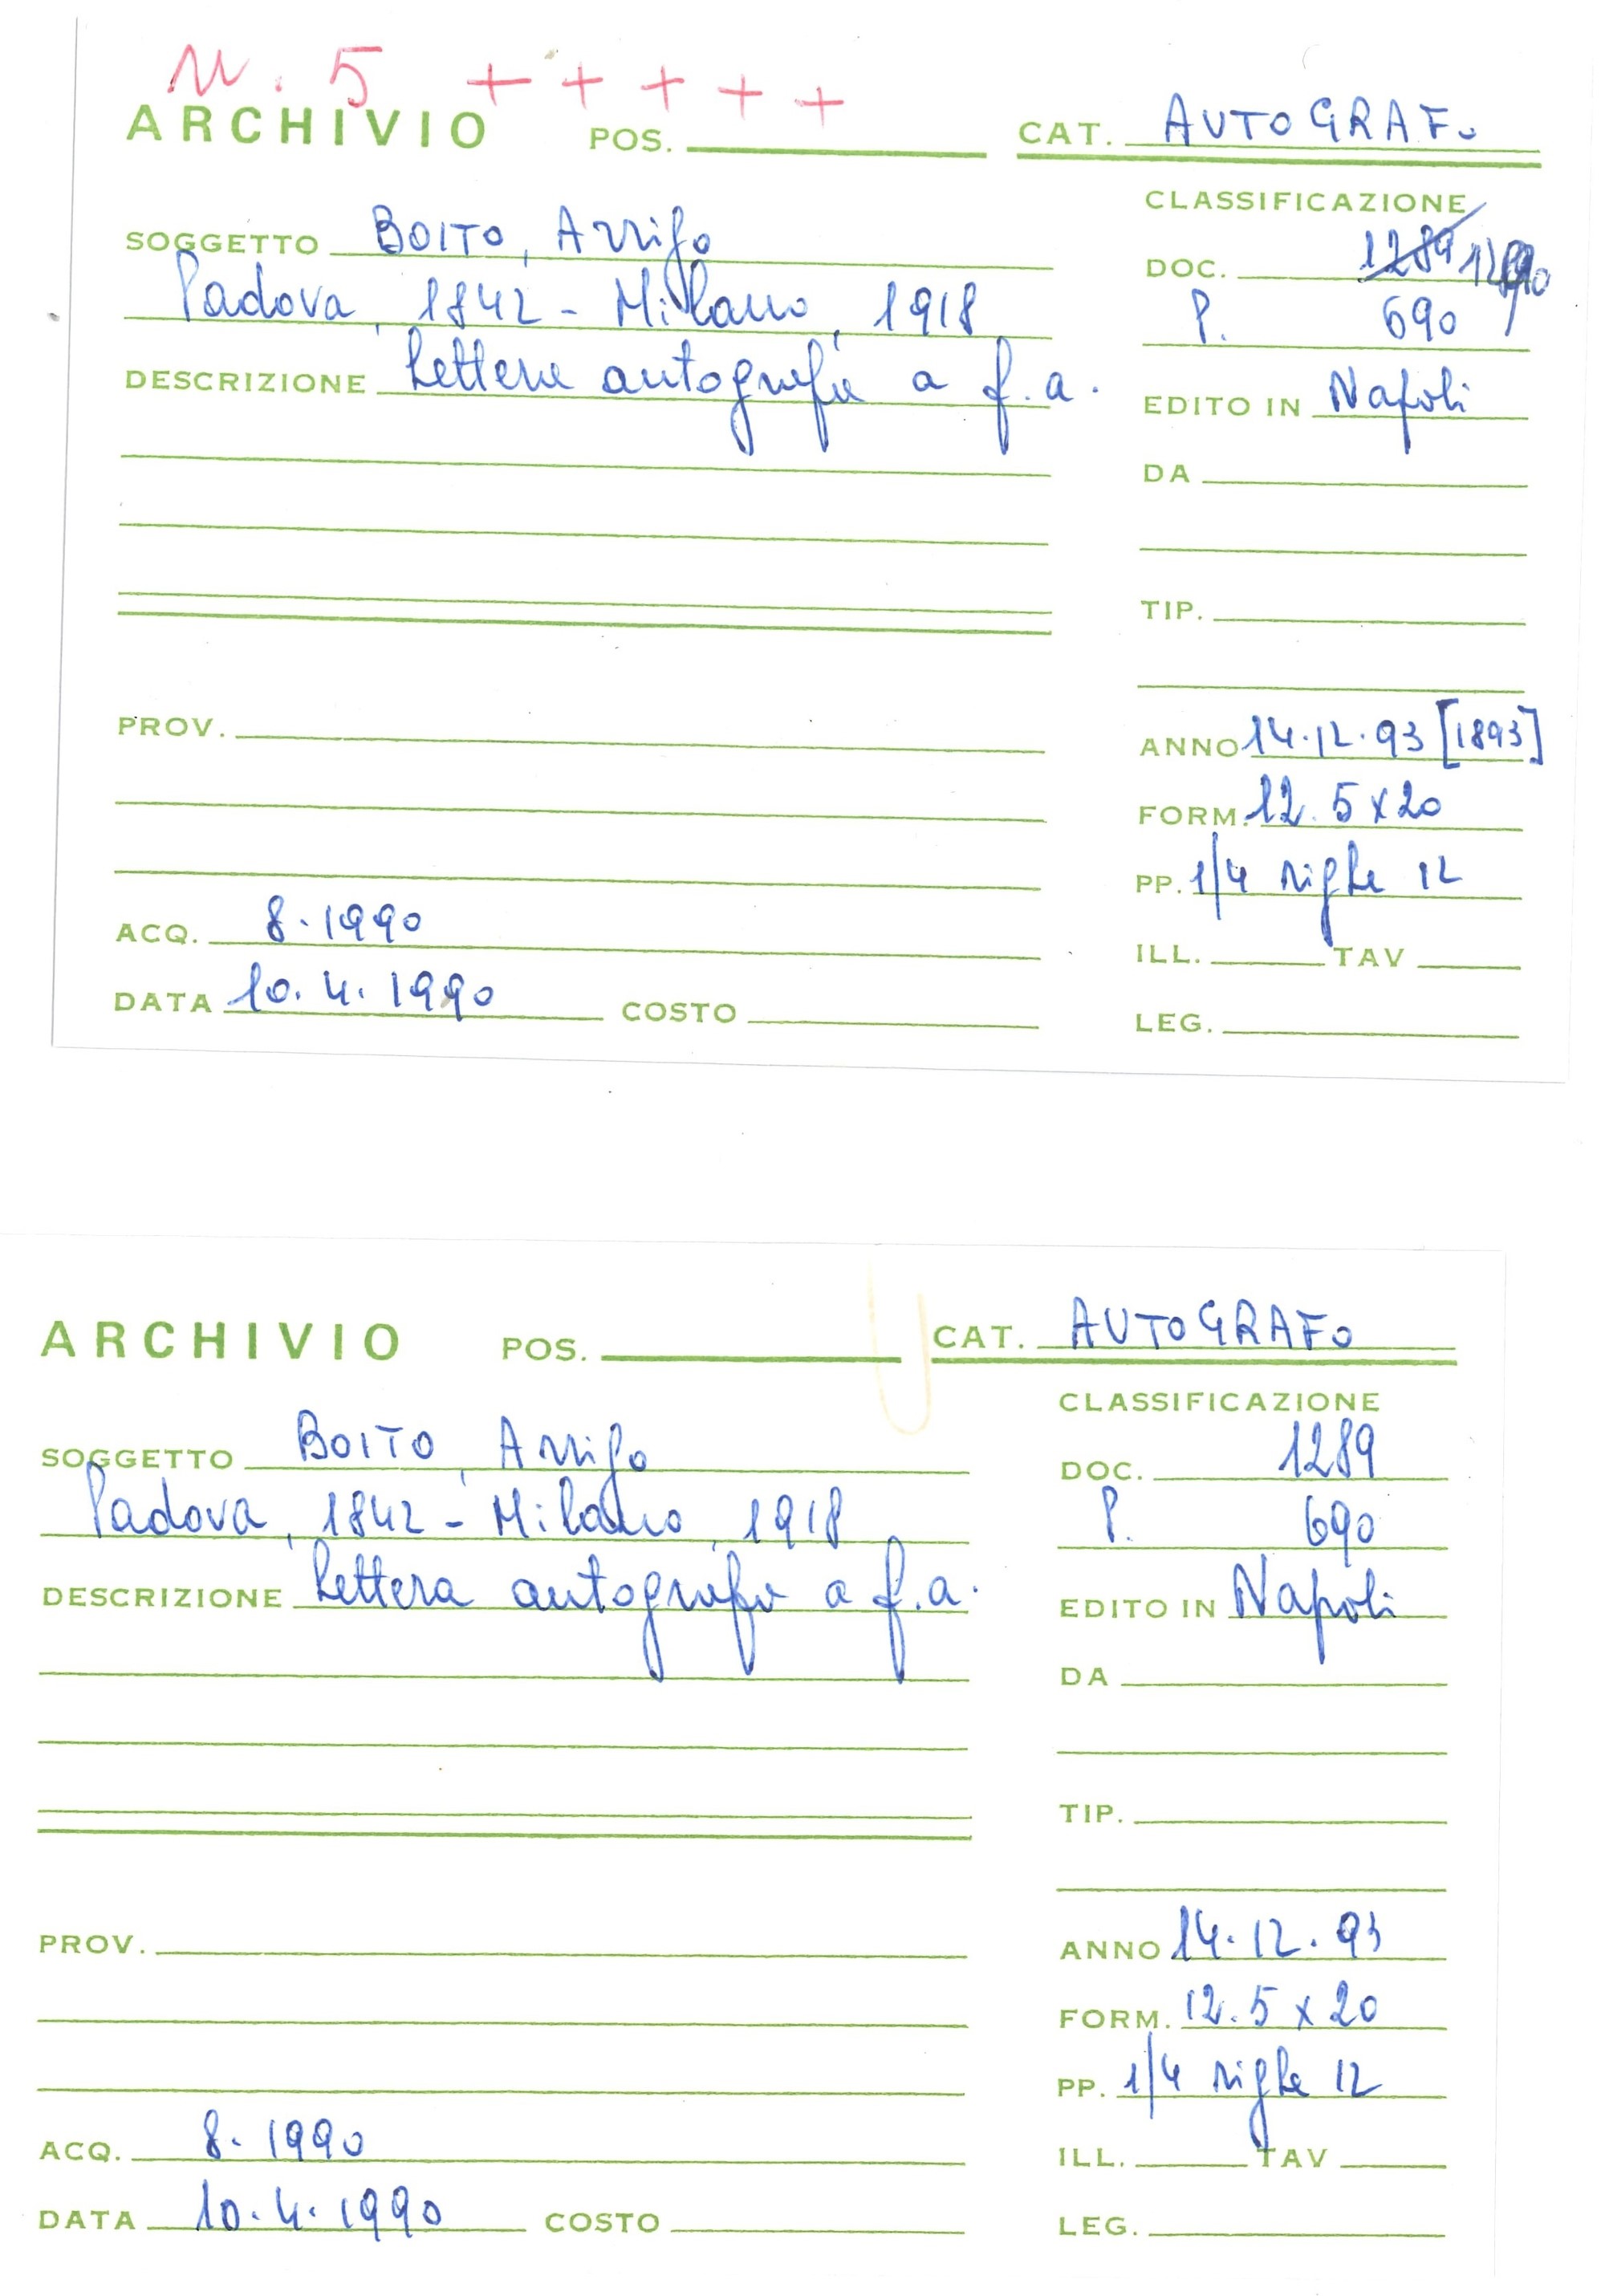 N. 5 + + + + +
ARCHIVIO POS. CAT. AUTOGRAFO
CLASSIFICAZIONE
SOGGETTO BOITO, Arrigo
DOC. 1289 1290
Padova, 1842 - Milano, 1918
P. 690
DESCRIZIONE Lettera autografa a f.a.
EDITO IN Napoli
DA
TIP.
PROV.
ANNO 14.12.93 [1893]
FORM. 12.5 x 20
PP. 1/4 righe 12
ACQ. 8.1990
ILL. TAV
DATA 10.4.1990 COSTO
LEG.
ARCHIVIO POS. CAT. AUTOGRAFO
CLASSIFICAZIONE
SOGGETTO BOITO, Arrigo
DOC. 1289
Padova, 1842 - Milano, 1918
P. 690
DESCRIZIONE Lettera autografa a f.a.
EDITO IN Napoli
DA
TIP.
PROV.
ANNO 14.12.93
FORM. 12.5 x 20
PP. 1/4 righe 12
ACQ. 8.1990
ILL. TAV
DATA 10.4.1990 COSTO
LEG.